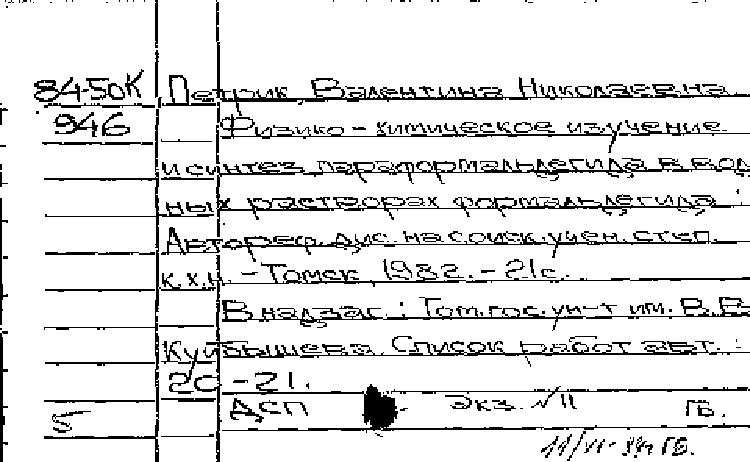 84-50К Петрик, Валентина Николаевна.
946 Физико-химическое изучение
и синтез параформальдегида в вод
ных растворах формальдегида :
Автореф. дис. на соиск. учен. степ.
к.х.н. - Томск, 1982. - 21с.
В надзаг.: Том. гос. ун-т им. В.В.
Куйбышева. Список работ авт. :
20-21.
5 ДСП Экз. №11 ГБ.